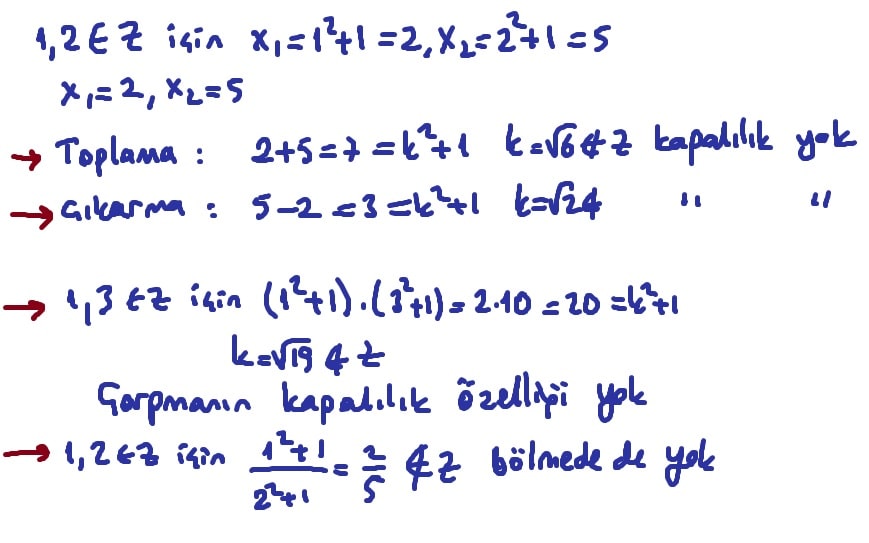 1,2 ∈ Z için x₁=1²+1=2, x₂=2²+1=5
x₁=2, x₂=5
→ Toplama : 2+5=7=k²+1 k=√6∉Z kapalılık yok
→ Çıkarma : 5-2=3=k²+1 k=√2∉ " "
→ 1,3 ∈Z için (1²+1).(3²+1)=2.10=20=k²+1
k=√19 ∉ Z
Çarpmanın kapalılık özelliği yok
→ 1,2 ∈Z için (1²+1)/(2²+1) = 2/5 ∉ Z bölmede de yok